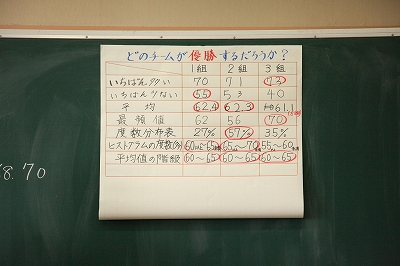 どのチームが優勝するだろうか?
1組 2組 3組
いちばん多い 70 71 73
いちばん少ない 55 53 40
平均 62.4 62.3 61.1
最頻値 62 56 70
度数分布表 27% 57% 35%
ヒストグラムの度数(多) 60~65 65~70 55~60
平均値の階級 60~65 60~65 60~65
8.70